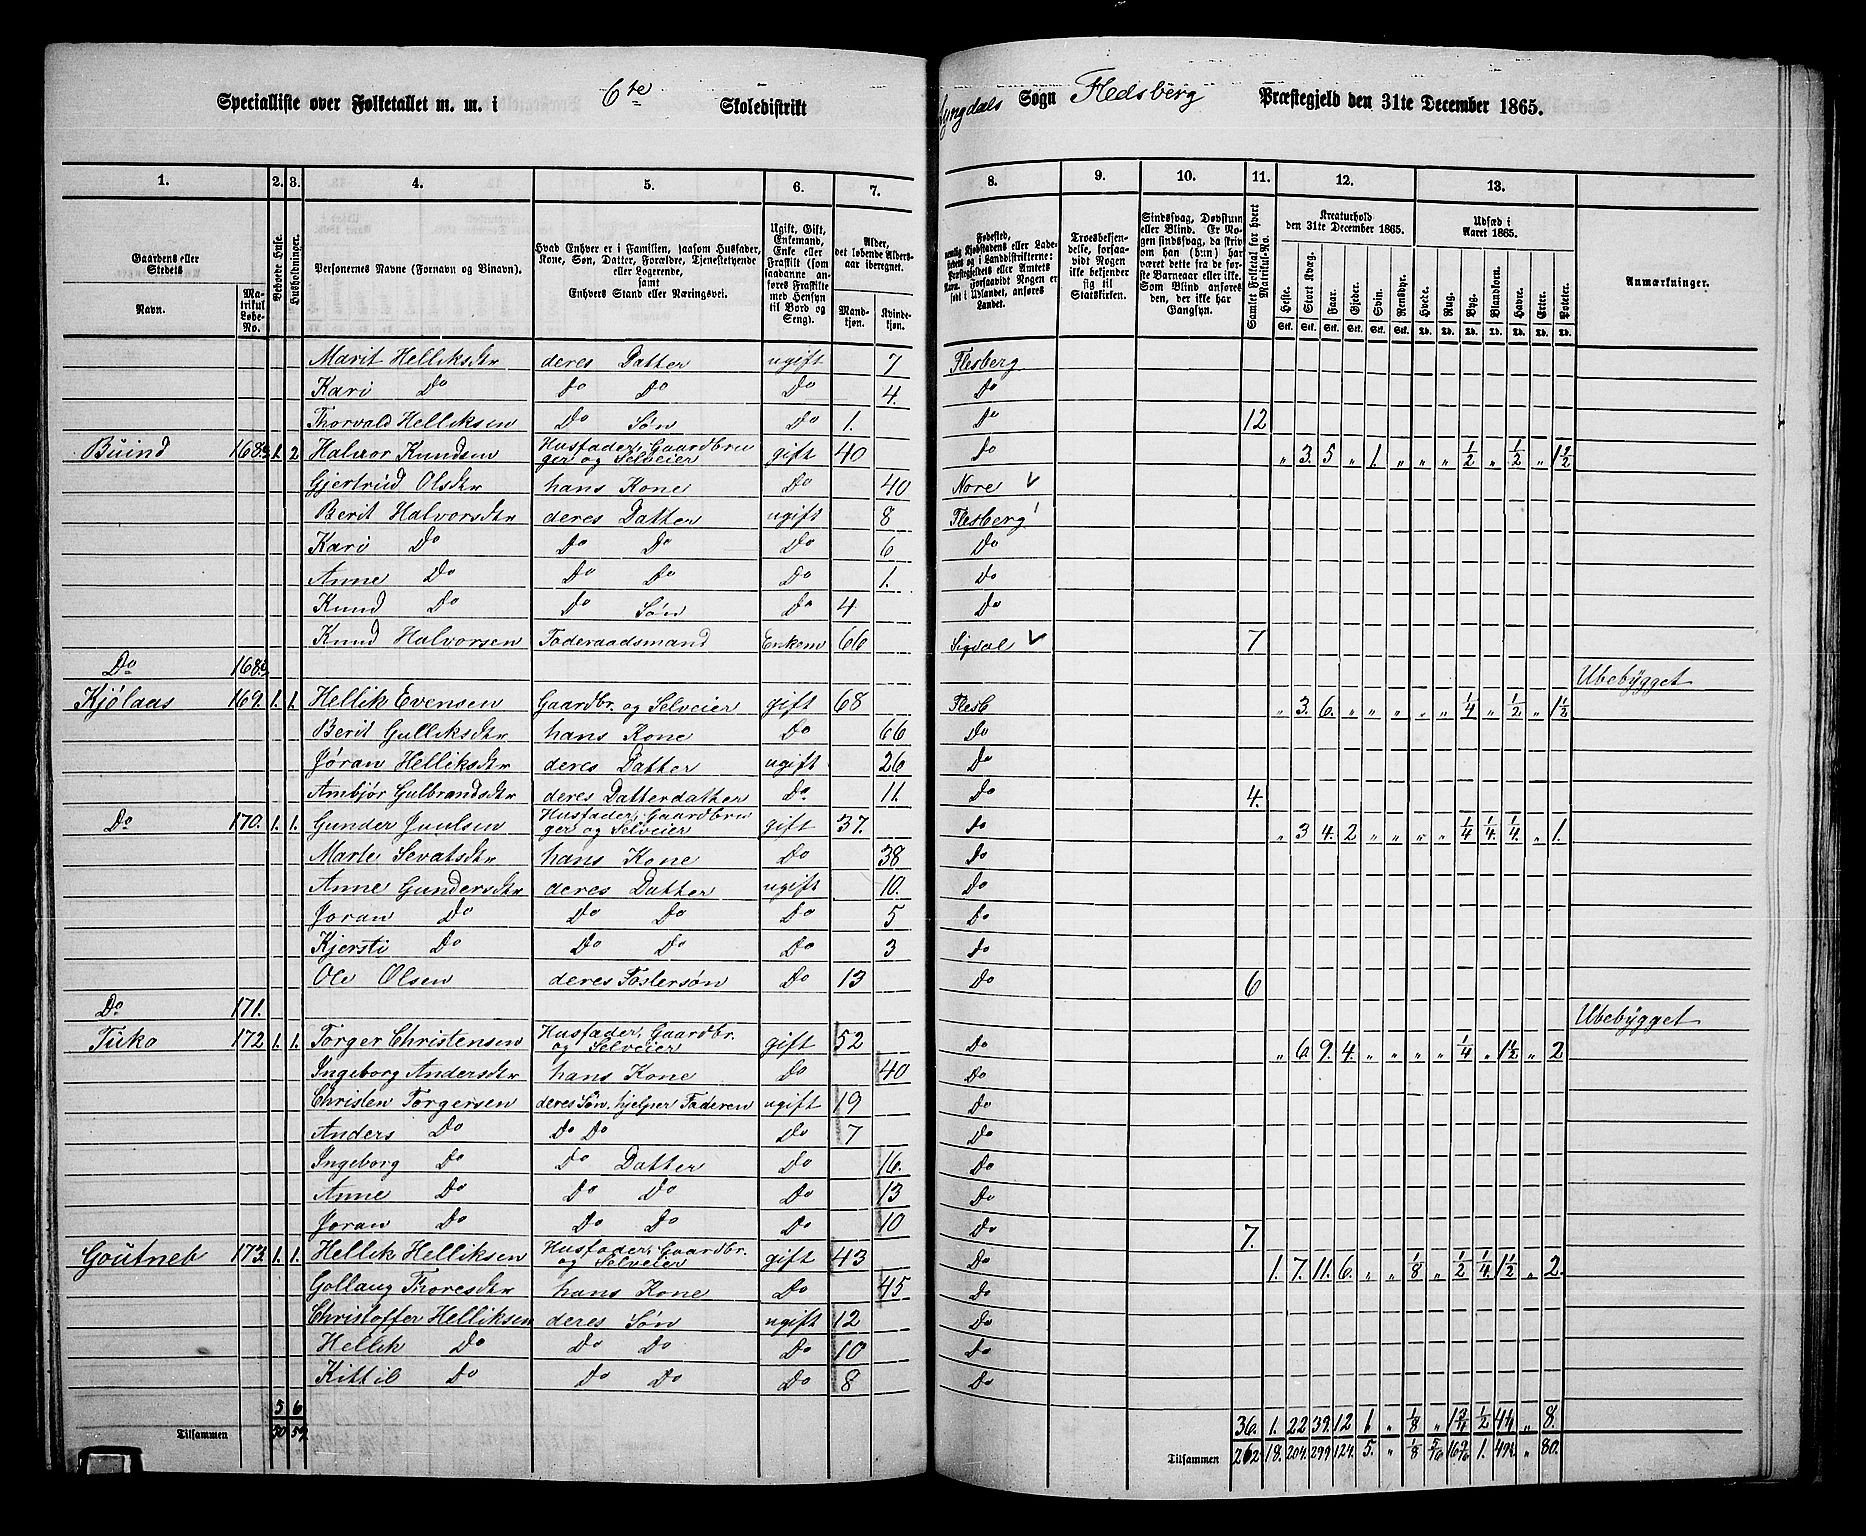 Specialliste over Folketallet m. m. i 6te Skoledistrikt Lyngdals Sogn Flesberg Præstegjeld den 31te December 1865.
1. 2. 3. 4. 5. 6. 7. 8. 9. 10. 11. 12. 13.
Gaardens eller Stedets
Navn.
Matrikul Løbe-No.
Beboede Huse.
Husholdninger.
Personernes Navne (Fornavn og Binavn).
Hvad Enhver er i Familien, saasom Husfader,
Kone, Søn, Datter, Forældre, Tjenestetyende
eller Logerende,
samt
Enhvers Stand eller Næringsvei.
Ugift, Gift,
Enkemand,
Enke eller
Fraskilt (saadanne anføres Fraskilte
med Hensyn
til Bord og
Seng).
Alder,
det løbende Aldersaar iberegnet.
Mandkjøn.
Kvindekjøn.
Fødested,
Troesbekjendelse, forsaavidt Nogen
ikke bekjender
sig til
Statskirken.
Sindssvag, Døvstum
eller Blind. Er Nogen sindssvag, da skrives om han (hun) har
været dette fra de første Barneaar eller ikke.
Som Blind anføres
den, der ikke har
Gangsyn.
Samlet Folketal for hvert Matrikul-No.
Kreaturhold
den 31te December 1865.
Heste. Stort Kvæg. Faar. Gjeder. Svin. Rensdyr.
Udsæd i
Aaret 1865.
Hvede. Rug. Byg. Blandkorn. Havre. Erter. Poteter.
Anmærkninger.
Marit Helliksdtr deres Datter ugift 7 Flesberg
Kari Do Do Do Do 4. Do
Thorvald Helliksen Do Søn Do 1. Do 12
Buind 168a 1. 2 Halvor Knudsen Husfader, Gaardbruger og Selveier gift 40 Do " 3. 5 " 1. " " " 1/2 " 1/2 " 1 1/2
Gjertrud Olsdtr hans Kone Do 40 Nore
Berit Halvorsdtr deres Datter ugift 8 Flesberg
Kari Do Do Do Do 6 Do
Anne Do Do Do Do 1. Do
Knud Do Do Søn Do 4 Do
Knud Halvorsen Føderaadsmand Enkem 66 Sigdal 7
Do 168b Ubebygget
Kjølaas 169. 1. 1. Hellik Evensen Gaardbr. og Selveier gift 68 Flesb " 3. 6. " " " " " 1/4 " 1/2 " 1 1/2
Berit Gulliksdtr hans Kone Do 66 Do
Jøran Helliksdtr deres Datter ugift 26 Do
Ambjør Gulbrandsdtr deres Datterdatter Do. 11. Do 4.
Do 170. 1. 1. Gunder Juulsen Husfader, Gaardbruger og Selveier gift 37. Do " 3 4. 2 " " " " 1/4 1/4. 1/4 " 1.
Marte Sevatsdtr hans Kone Do 38 Do
Anne Gundersdtr deres Datter ugift 10. Do
Joran Do Do Do Do 5 Do
Kjersti Do Do Do Do 3 Do
Ole Olsen deres Fostersøn Do 13 Do 6
Do 171. Ubebygget
Tuko 172 1. 1. Torger Christensen Husfader, Gaardbr. og Selveier gift 52 Do " 6 9. 4. " " " " 1/4 " 1 1/2 " 2
Ingeborg Andersdtr hans Kone Do 40 Do
Christen Torgersen deres Søn, hjelper Faderen ugift 19 Do
Anders Do Do Do Do 7 Do
Ingeborg Do Do Datter Do 16. Do
Anne Do Do Do Do 13 Do
Joran Do Do Do Do 10 Do 7.
Goutneb 173. 1. 1. Hellik Helliksen Husfader, Gaardbr. og Selveier gift 43 Do 1. 7. 11. 6. " " 1/8 " 1/2 1/4. 1 1/2 " 2.
Gollaug Thoresdtr hans Kone Do 45 Do
Christoffer Helliksen deres Søn ugift 12 Do
Hellik Do Do Do Do 10 Do
Kittil Do Do Do Do 8 Do
5 6 36. 1. 22 39. 12 1 " 1/8 " 1 3/4 1/2 4 1/4 " 8.
Tilsammen 50 59. Tilsammen 262 18. 204. 299 124. 5. " 1/8 1. " 80.